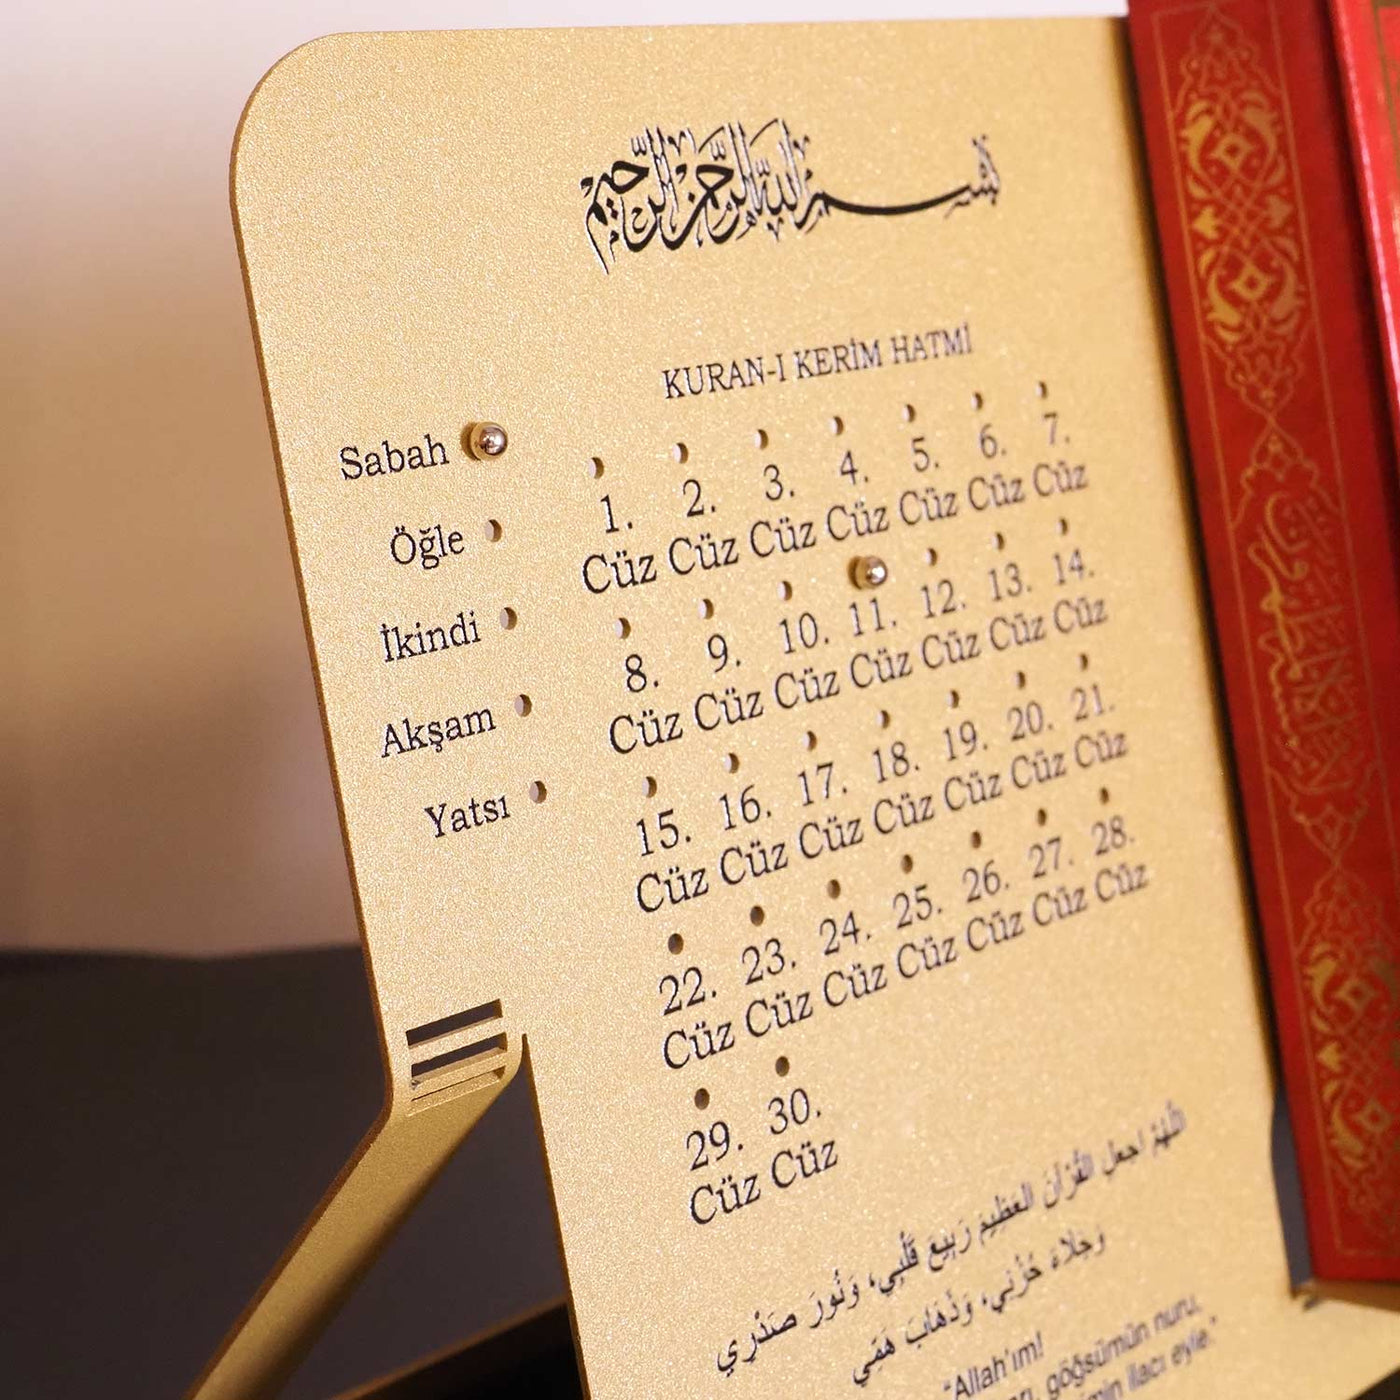 بسم الله الرحمن الرحيم
KURAN-I KERİM HATMİ
Sabah
Öğle
İkindi
Akşam
Yatsı
1. 2. 3. 4. 5. 6. 7.
Cüz Cüz Cüz Cüz Cüz Cüz Cüz
8. 9. 10. 11. 12. 13. 14.
Cüz Cüz Cüz Cüz Cüz Cüz Cüz
15. 16. 17. 18. 19. 20. 21.
Cüz Cüz Cüz Cüz Cüz Cüz Cüz
22. 23. 24. 25. 26. 27. 28.
Cüz Cüz Cüz Cüz Cüz Cüz Cüz
29. 30.
Cüz Cüz
اللَّهُمَّ اجعل القُرْآنَ العَظِيمَ رَبِيعَ قَلْبِي، وَنُورَ صَدْرِي
وَجَلاَءَ حُزْنِي، وَذَهَابَ هَمِّي
"Allah'ım!
göğsümün nuru,
ilacı eyle."